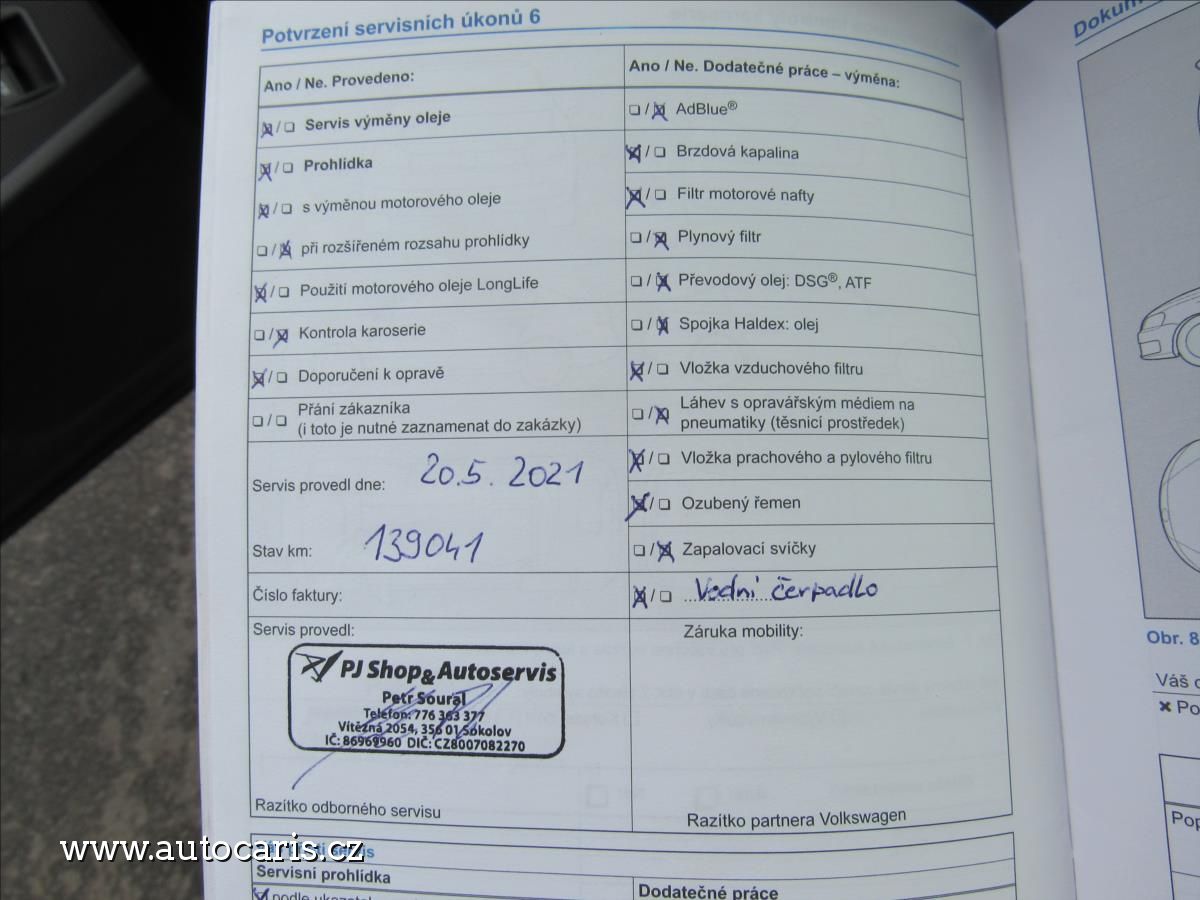 Potvrzení servisních úkonů 6
Ano / Ne. Provedeno:
☒ / ☐ Servis výměny oleje
☒ / ☐ Prohlídka
☒ / ☐ s výměnou motorového oleje
☐ / ☒ při rozšířeném rozsahu prohlídky
☒ / ☐ Použití motorového oleje LongLife
☐ / ☒ Kontrola karoserie
☒ / ☐ Doporučení k opravě
☐ / ☐ Přání zákazníka
(i toto je nutné zaznamenat do zakázky)
Servis provedl dne: 20.5. 2021
Stav km: 139041
Číslo faktury:
Servis provedl:
PJ Shop & Autoservis
Petr Soural
Telefon: 776 363 377
Vítězná 2054, 356 01 Sokolov
IČ: 86969960 DIČ: CZ8007082270
Razítko odborného servisu
Ano / Ne. Dodatečné práce – výměna:
☐ / ☒ AdBlue®
☒ / ☐ Brzdová kapalina
☒ / ☐ Filtr motorové nafty
☐ / ☒ Plynový filtr
☐ / ☒ Převodový olej: DSG®, ATF
☐ / ☒ Spojka Haldex: olej
☒ / ☐ Vložka vzduchového filtru
☐ / ☒ Láhev s opravářským médiem na
pneumatiky (těsnicí prostředek)
☒ / ☐ Vložka prachového a pylového filtru
☒ / ☐ Ozubený řemen
☐ / ☒ Zapalovací svíčky
☒ / ☐ Vodní čerpadlo
Záruka mobility:
Razítko partnera Volkswagen
Servisní prohlídka
Dodatečné práce
Obr. 8
Váš
✖ Po
Pop
www.autocaris.cz